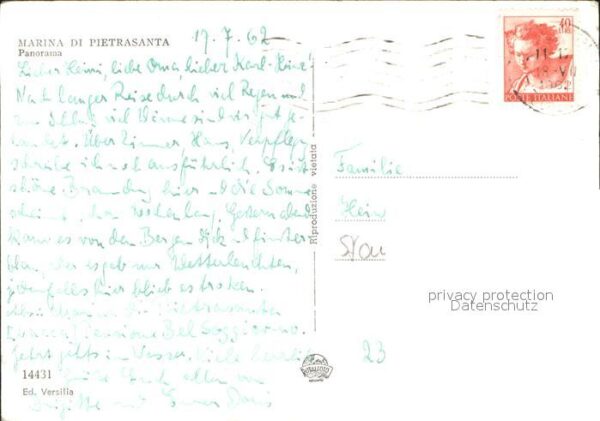 MARINA DI PIETRASANTA
Panorama
17.7.62
Lieber Heini, liebe Oma, lieber Karl-Heinz!
Nach langer Reise durch viel Regen und
zum Schluß viel Wärme sind wir gut ge-
landet. Über Zimmer, Haus, Verpfleg.
schreibe ich noch ausführlich. Es ist
schöne Brandung hier die Sonne
scheint, wochenlang. Gestern abend
kam es von den Bergen dick finster
aber es gab nur Wetterleuchten,
jedenfalls hier blieb es trocken.
Marina di Pietrasanta
(Lucca) Pensione Bel Soggiorno.
Jetzt geht's in's Wasser. Viele herzliche
Grüße Euch allen von
Brigitte und Doris
Familie
Hein
Riproduzione vietata
40
LIRE
POSTE ITALIANE
privacy protection
Datenschutz
23
14431
Ed. Versilia